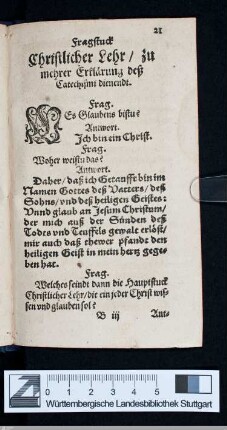 21
Fragstuck
Christlicher Lehr / zů
mehrer Erklärung deß
Catechismi dienendt.
Frag.
Wes Glaubens bistu?
Antwort.
Ich bin ein Christ.
Frag.
Woher weistu das?
Antwort.
Daher / daß ich Getaufft bin im
Namen Gottes deß Vatters / deß
Sohns / vnd deß heiligen Geistes:
Vnnd glaub an Jesum Christum /
der mich auß der Sünden deß
Todes vnd Teuffels gewalt erlößt /
mir auch daß thewer pfandt den
heiligen Geist in mein hertz gege-
ben hat.
Frag.
Welches seindt dann die Hauptstuck
Christlicher Lehr / die ein jeder Christ wis-
sen vnd glauben sol?
B iij Ant-
0 1 2 3 4 5 6 7 8 9 10
Württembergische Landesbibliothek Stuttgart